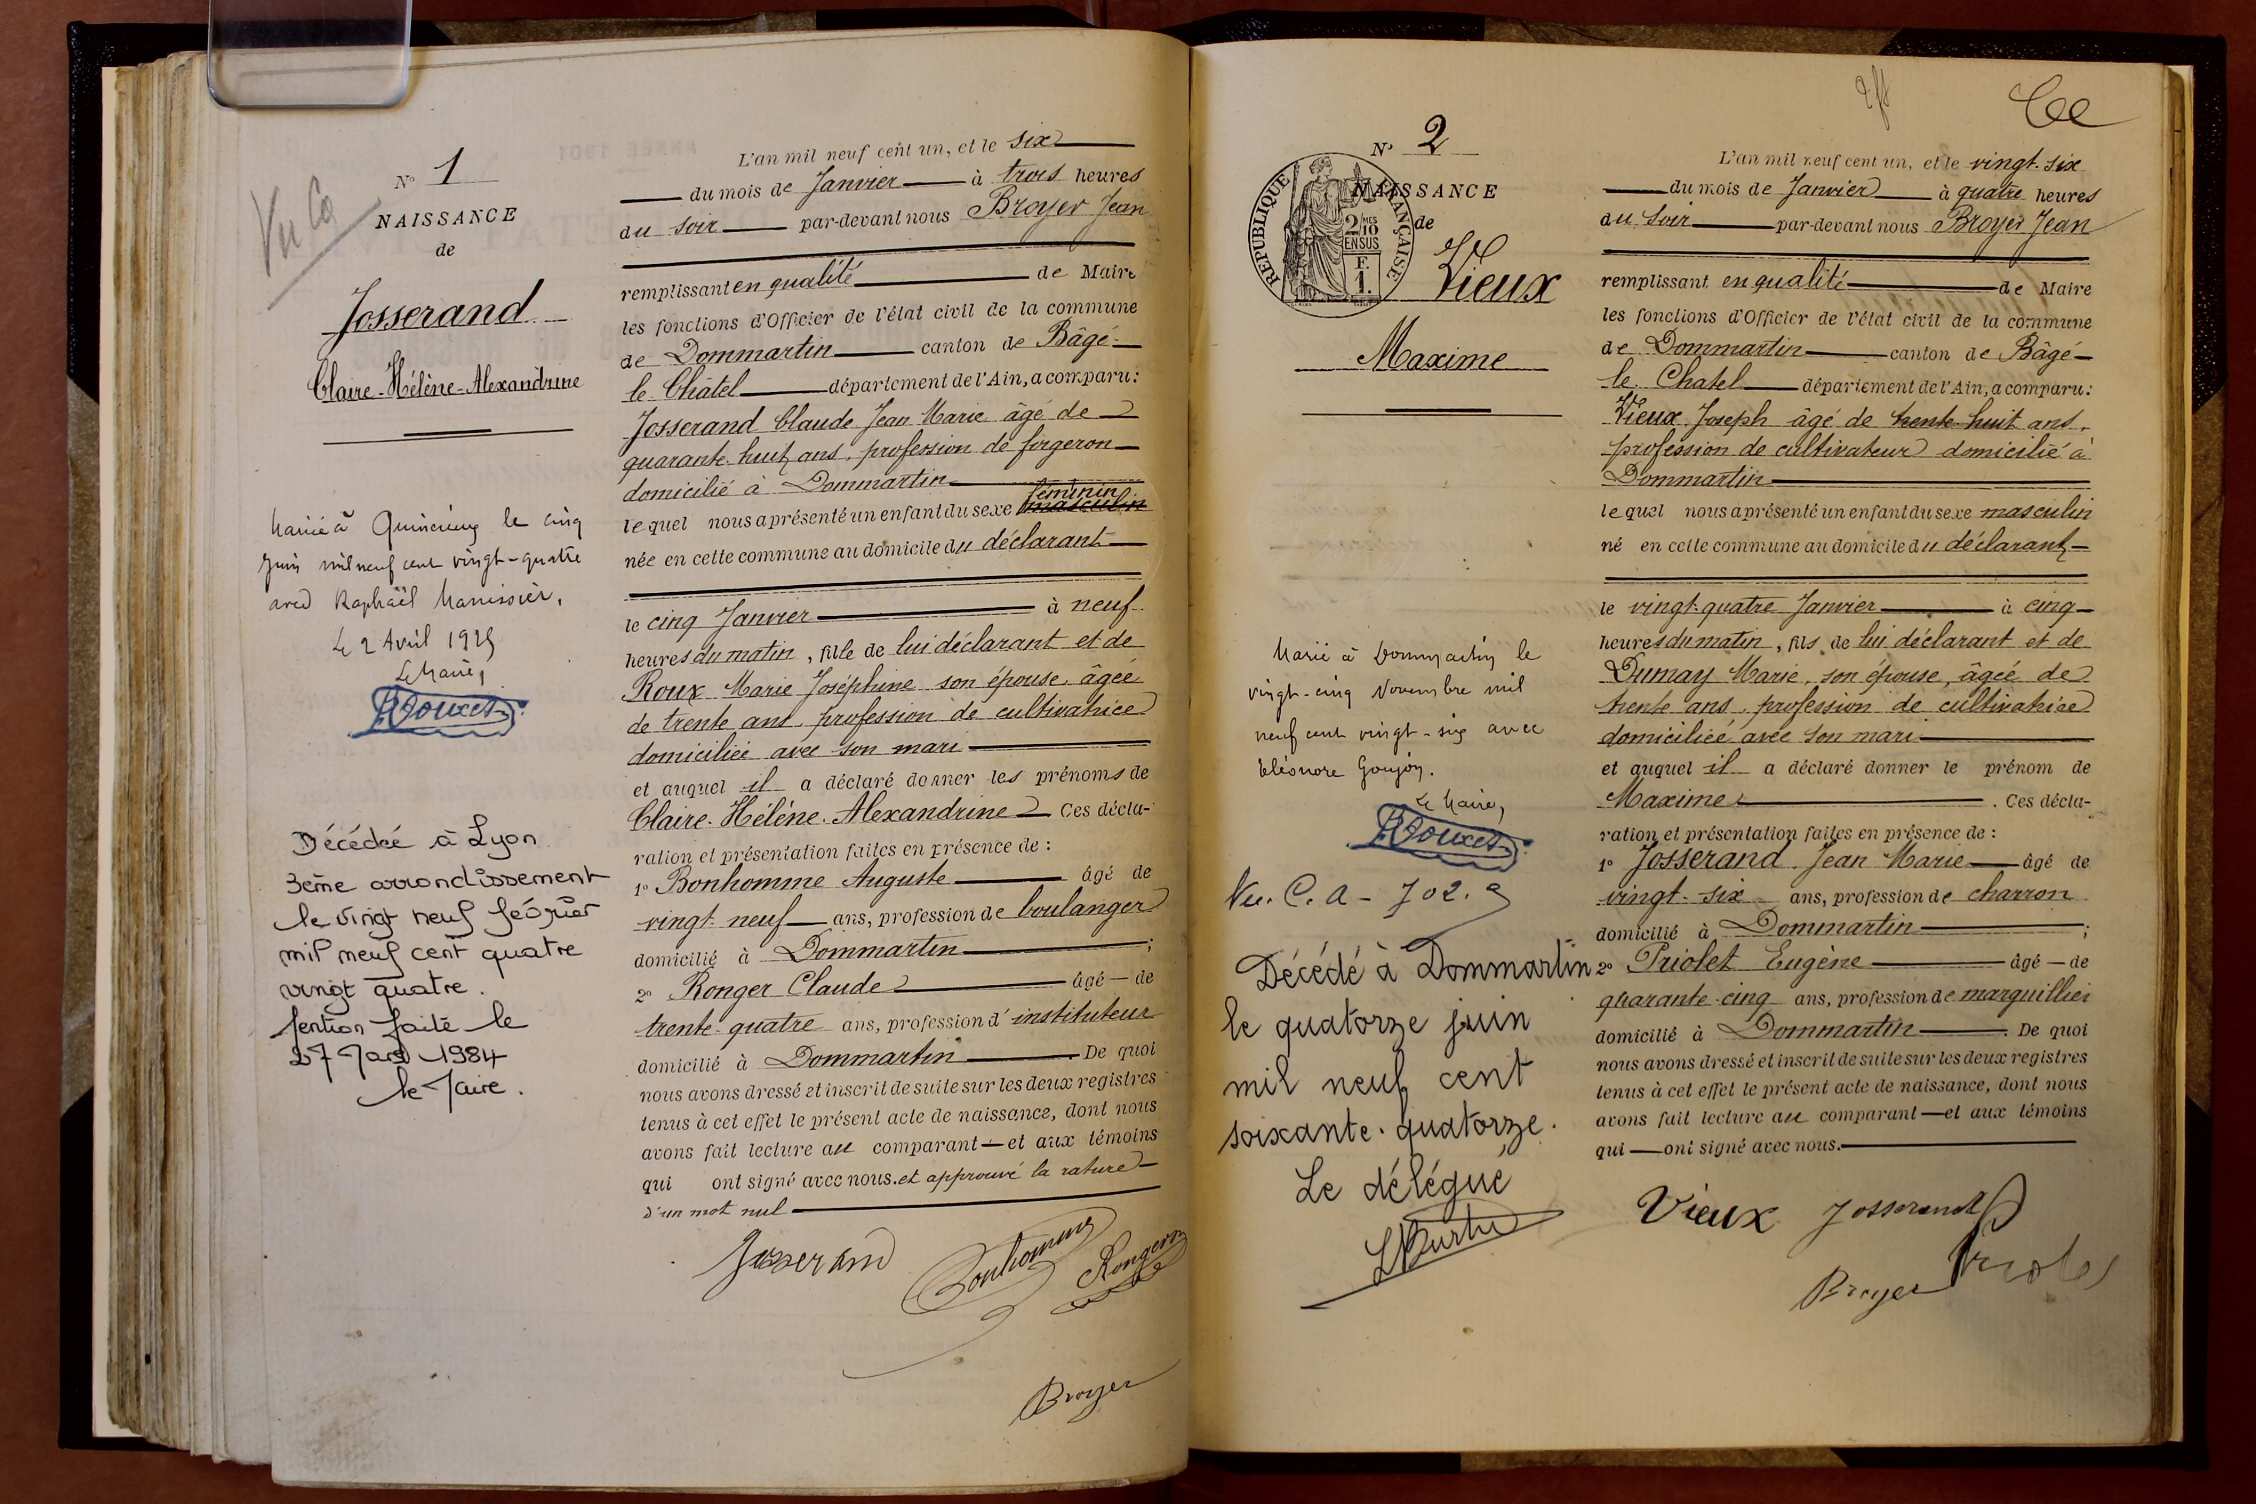 Vu Ca
N° 1
NAISSANCE
de
Josserand
Claire-Hélène-Alexandrine
Marié à Quincieux le cinq
juin mil neuf cent vingt-quatre
avec Raphaël
Le 2 Avril 1925
Le Maire,
Décédée à Lyon
3ème arrondissement
le vingt neuf février
mil neuf cent quatre
vingt quatre.
Mention faite le
27 Mars 1984
le Maire.
L'an mil neuf cent un, et le six
du mois de Janvier à trois heures
du soir par-devant nous Broyer Jean
remplissant en qualité de Maire
les fonctions d'Officier de l'état civil de la commune
de Dommartin canton de Bâgé-
le Châtel département de l'Ain, a comparu:
Josserand Claude Jean Marie âgé de
quarante-huit ans, profession de forgeron
domicilié à Dommartin
féminin
lequel nous a présenté un enfant du sexe masculin
née en cette commune au domicile du déclarant
le cinq Janvier à neuf
heures du matin, fille de lui déclarant et de
Roux Marie Joséphine son épouse, âgée
de trente ans profession de cultivatrice
domiciliée avec son mari
et auquel il a déclaré donner les prénoms de
Claire-Hélène-Alexandrine Ces décla-
ration et présentation faites en présence de :
1° Bonhomme Auguste âgé de
vingt-neuf ans, profession de boulanger
domicilié à Dommartin ;
2° Ronger Claude âgé de
trente-quatre ans, profession d'instituteur
domicilié à Dommartin De quoi
nous avons dressé et inscrit de suite sur les deux registres
tenus à cet effet le présent acte de naissance, dont nous
avons fait lecture au comparant et aux témoins
qui ont signé avec nous. et approuvé la rature
d'un mot nul
Josserand
Bonhomme
Ronger
Broyer
N° 2
NAISSANCE
de
REPUBLIQUE FRANÇAISE
2/10 MES
EN SUS
F.
1.
Vieux
Maxime
Marié à Dommartin le
vingt-cinq Novembre mil
neuf cent vingt-six avec
Eléonore Goujon.
Le Maire,
Vu. C. A - 702.
Décédé à Dommartin
le quatorze juin
mil neuf cent
soixante-quatorze.
Le délégué
L'an mil neuf cent un, et le vingt-six
du mois de Janvier à quatre heures
du soir par-devant nous Broyer Jean
remplissant en qualité de Maire
les fonctions d'Officier de l'état civil de la commune
de Dommartin canton de Bâgé-
le Chatel département de l'Ain, a comparu:
Vieux Joseph âgé de trente-huit ans,
profession de cultivateur domicilié à
Dommartin
lequel nous a présenté un enfant du sexe masculin
né en cette commune au domicile du déclarant
le vingt-quatre Janvier à cinq
heures du matin, fils de lui déclarant et de
Dumay Marie, son épouse, âgée de
trente ans, profession de cultivatrice
domiciliée avec son mari
et auquel il a déclaré donner le prénom de
Maxime . Ces décla-
ration et présentation faites en présence de :
1° Josserand Jean Marie âgé de
vingt-six ans, profession de charron
domicilié à Dommartin ;
2° Priolet Eugène âgé de
quarante-cinq ans, profession de marguillier
domicilié à Dommartin . De quoi
nous avons dressé et inscrit de suite sur les deux registres
tenus à cet effet le présent acte de naissance, dont nous
avons fait lecture au comparant et aux témoins
qui ont signé avec nous.
Vieux Josserand
Broyer Priolet